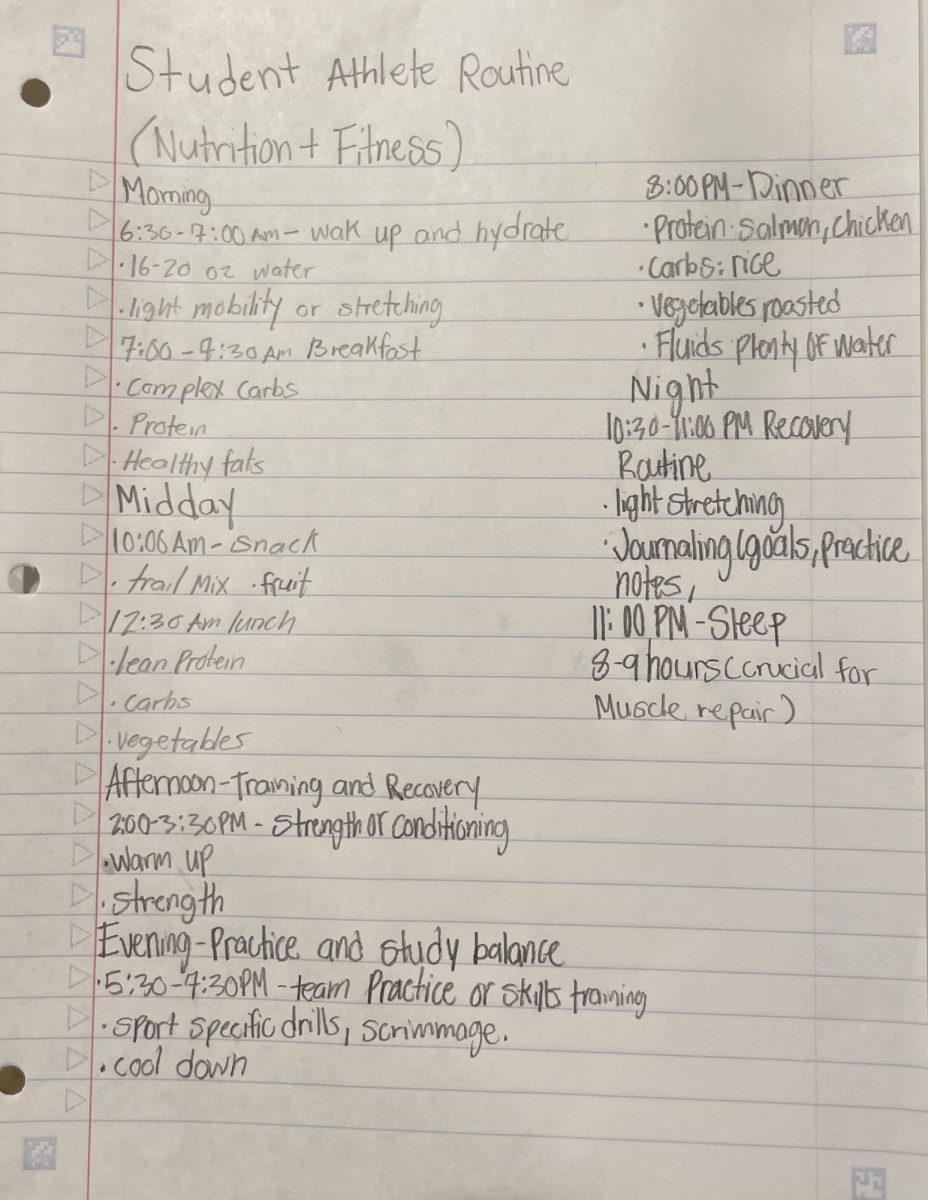 Student Athlete Routine
(Nutrition + Fitness)
Morning
6:30-7:00 AM - wak up and hydrate
·16-20 oz water
·light mobility or stretching
7:00-7:30 AM Breakfast
·Complex Carbs
·Protein
·Healthy fats
Midday
10:00 Am - snack
·trail Mix ·fruit
12:30 Am lunch
·lean Protein
·carbs
·vegetables
Afternoon-Training and Recovery
2:00-3:30PM - Strength or Conditioning
·Warm up
·Strength
Evening-Practice and study balance
·5:30-7:30PM - team Practice or skills training
·sport specific drills, scrimmage.
·cool down
8:00PM-Dinner
·Protein: Salmon, Chicken
·Carbs: rice
·Vegetables roasted
·Fluids Plenty OF Water
Night
10:30-11:00 PM Recovery
Routine
·light stretching
·Journaling (goals, practice
notes,
11:00 PM-Sleep
8-9 hours (crucial for
Muscle repair)